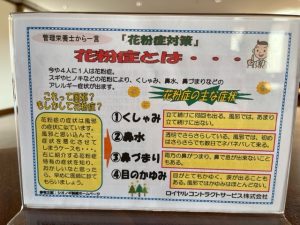 管理栄養士から一言
「花粉症対策」
花粉症とは・・・
今や4人に1人は花粉症。
スギやヒノキなどの花粉により、くしゃみ、鼻水、鼻づまりなどの
アレルギー症状が出ます。
これって風邪？
もしかして花粉症？
花粉症の症状は風邪
の症状に似ています。
風邪と思い込んで、
症状を悪化させて
しまうケースも・・・
右に紹介する花粉症
特有の症状が出て、
花粉症かなと思った
ら、早めに医師に診て
もらいましょう。
花粉症の主な症状
①くしゃみ
立て続けに何回も出る。風邪では、あまり
立て続けに出ない。
②鼻水
透明でさらさらしている。風邪では、初め
はさらさらでも数日でネバネバして来る。
③鼻づまり
両方の鼻がつまり、鼻で息が出来ないこと
もある。
④目のかゆみ
目がとてもかゆく、涙が出ることも
ある。風邪ではかゆみはほとんどない。
ロイヤルコントラクトサービス株式会社